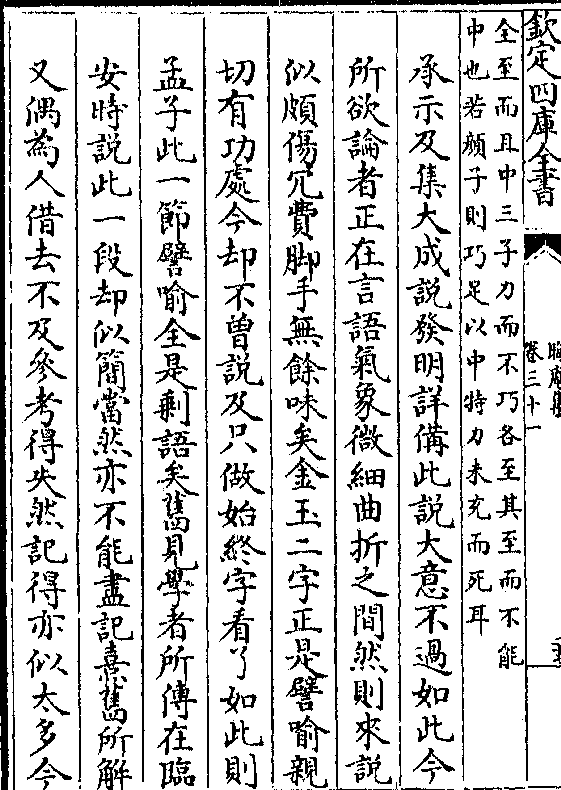 欽定四庫全書
卷三十一
全至而且中三子力而不巧各至其至而不能
中也若顔子則巧足以中特力未充而死耳
承示及集大成説發明詳備此説大意不過如此今
所欲論者正在言語氣象微細曲折之間然則來説
似頗傷冗費脚手無餘味矣金玉二字正是譬喻親
切有功處今却不曽説及只做始終字看了如此則
孟子此一節譬喻全是剩語矣舊見學者所傳在臨
安時説此一段却似簡當然亦不能盡記熹舊所解
又偶為人借去不及參考得失然記得亦似太多今